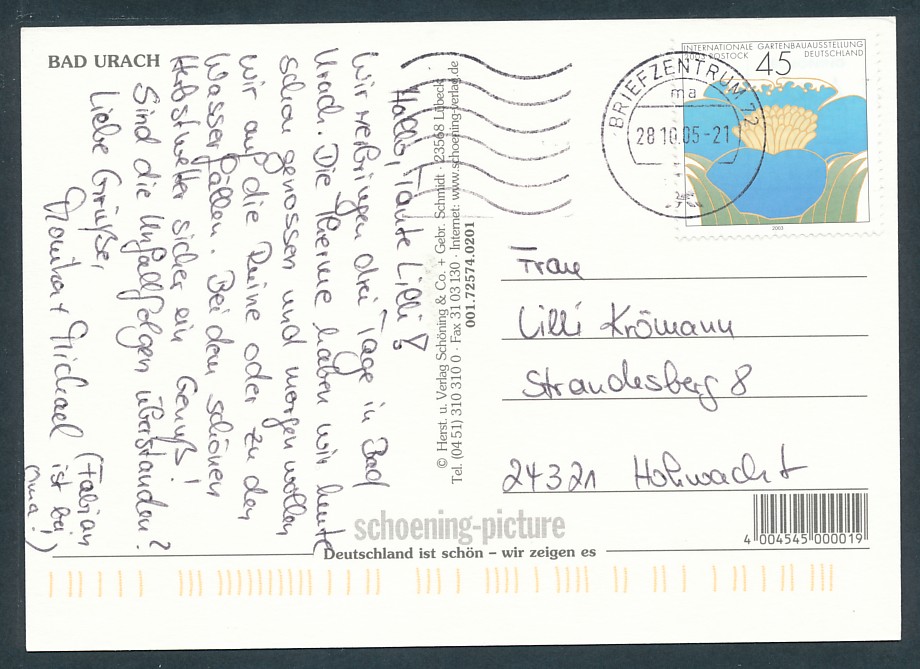 BAD URACH
Hallo, Tante Lilli!
Wir verbringen drei Tage in Bad
Urach. Die Therme haben wir heute
schon genossen und morgen wollen
wir auf die Ruine oder zu den
Wasserfällen. Bei dem schönen
Herbstwetter sicher ein Genuß!
Sind die Unfallfolgen überstanden?
Liebe Grüße,
Monika + Michael (Fabian
ist bei
Oma!)
© Herst. u. Verlag Schöning & Co. + Gebr. Schmidt · 23568 Lübeck
Tel. (04 51) 310 310 0 · Fax 31 03 130 · Internet: www.schoening-verlag.de
001.72574.0201
INTERNATIONALE GARTENBAUAUSSTELLUNG
2003 ROSTOCK
DEUTSCHLAND
45
2003
BRIEFZENTRUM 72
ma
28.10.05-21
Frau
Lilli Krömann
Strandesberg 8
24321 Hohwacht
4 004545 000019
schoening-picture
Deutschland ist schön – wir zeigen es